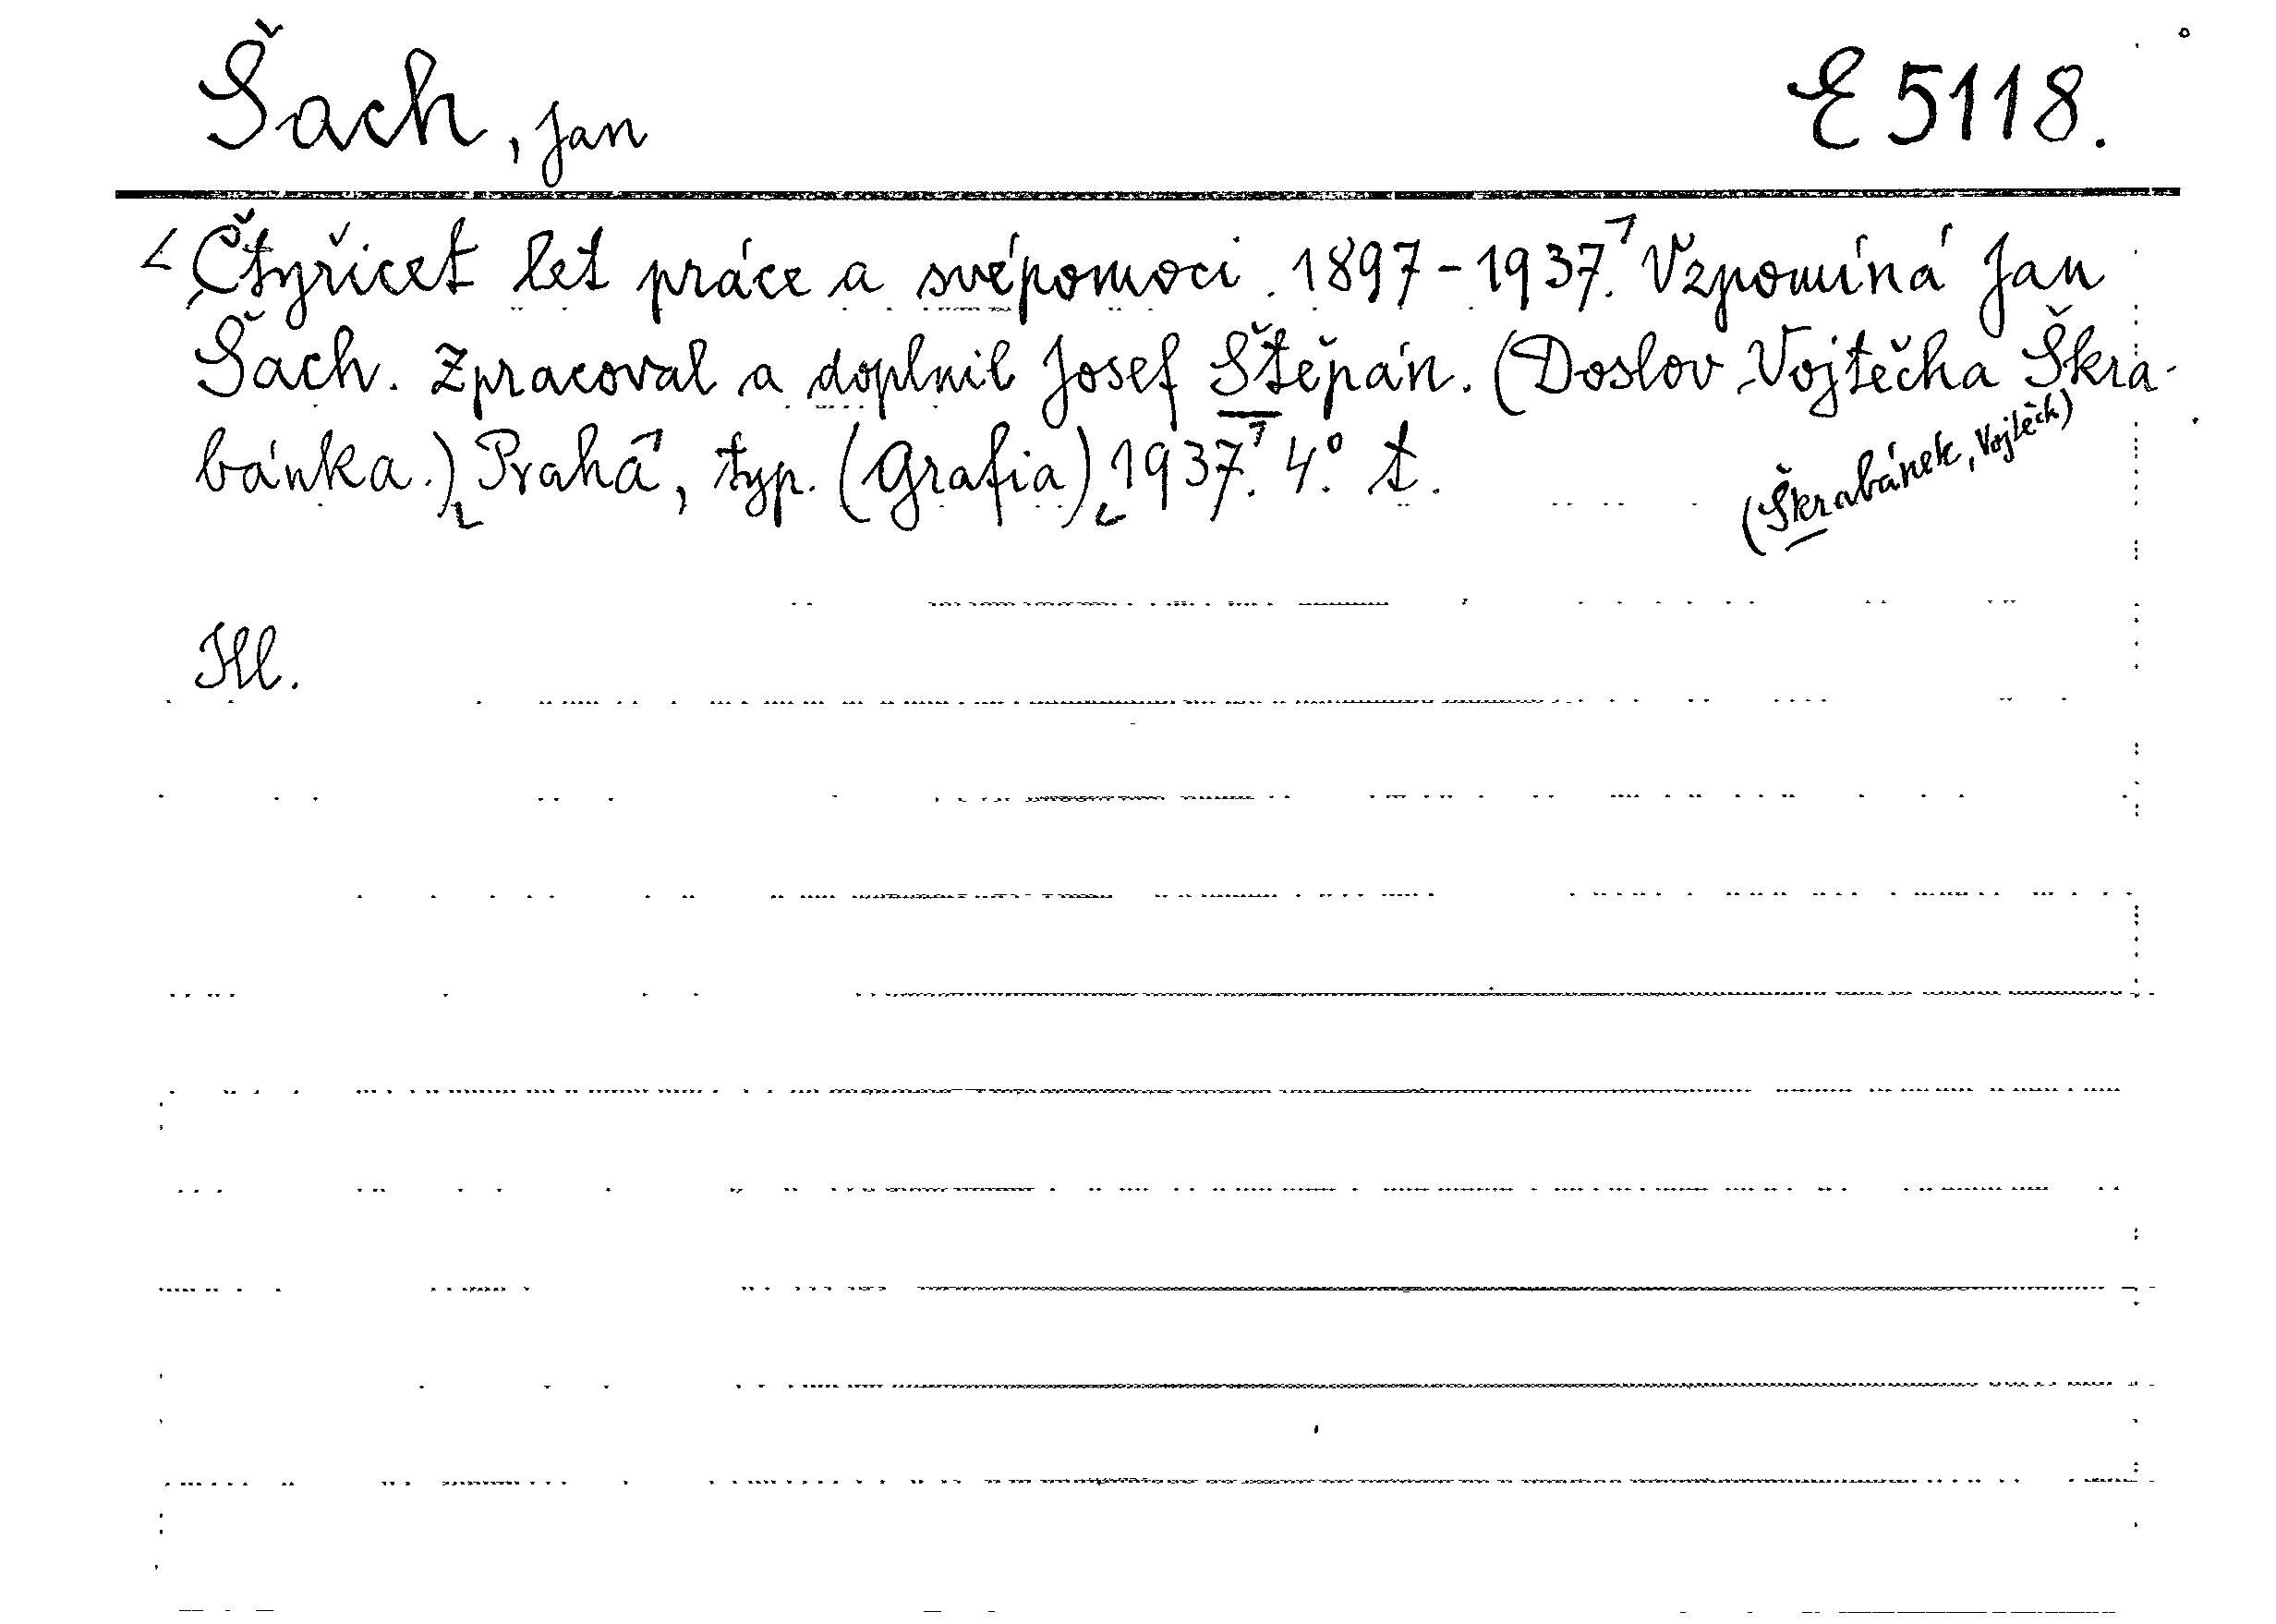 Šach, Jan E 5118.
Čtyřicet let práce a svépomoci. 1897-1937. Vzpomíná Jan
Šach. Zpracoval a doplnil Josef Štěpán. (Doslov Vojtěcha Škra-
bánka.) Praha, typ. (Grafia) 1937. 4° t.
(Škrabánek, Vojtěch)
Hl.